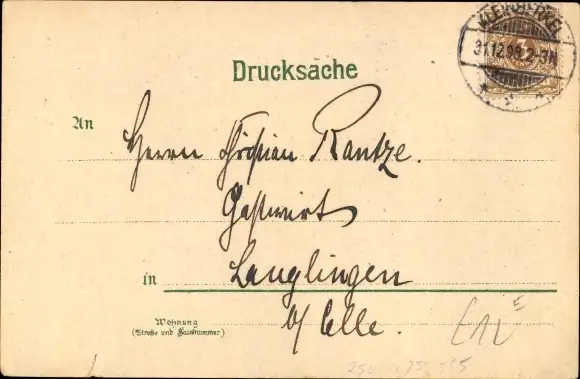 KLEINBERKEL
31.12.98.2-3N
3
Drucksache
An
Herrn Christian Rantze.
Gastwirt
in Langlingen
b/ Celle.
Wohnung
(Straße und Hausnummer)